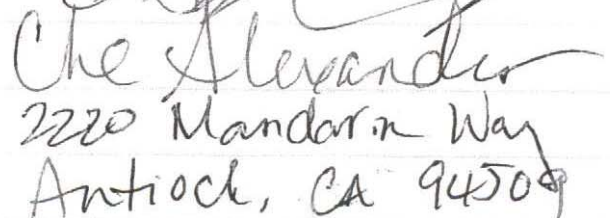 Che Alexander
2220 Mandarin Way
Antioch, CA 94509